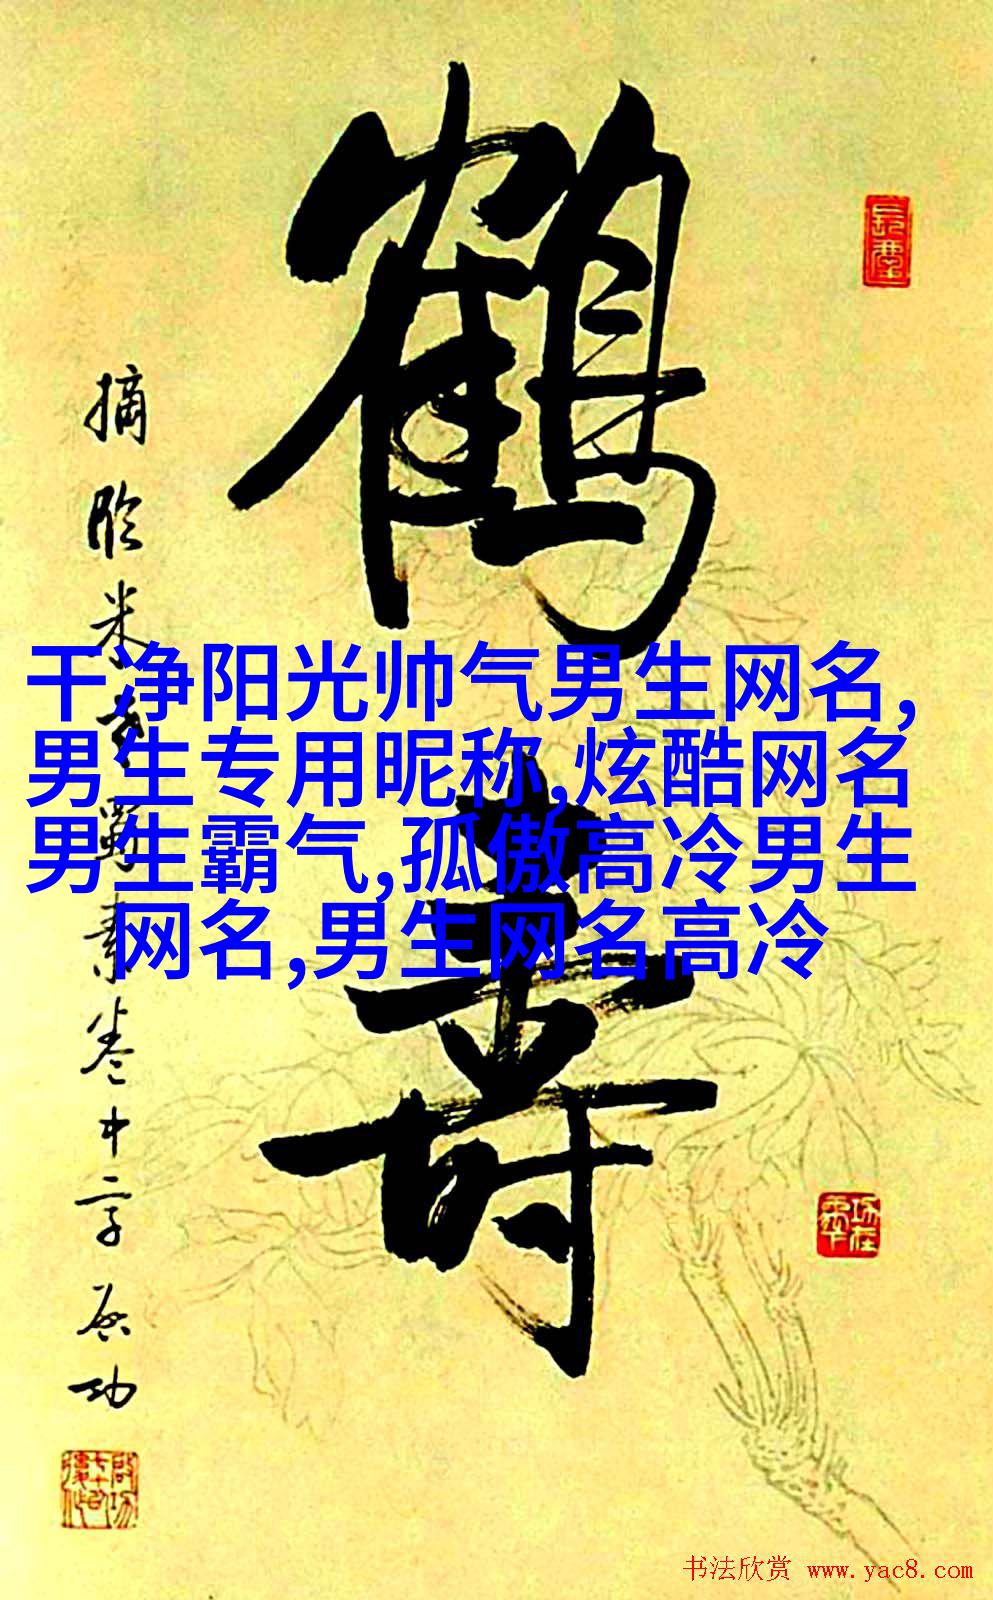 鹤寿
摘临米书蜀素卷中字 启功
干净阳光帅气男生网名,
男生专用昵称,炫酷网名
男生霸气,孤傲高冷男生
网名,男生网名高冷
书法欣赏 www.yac8.com